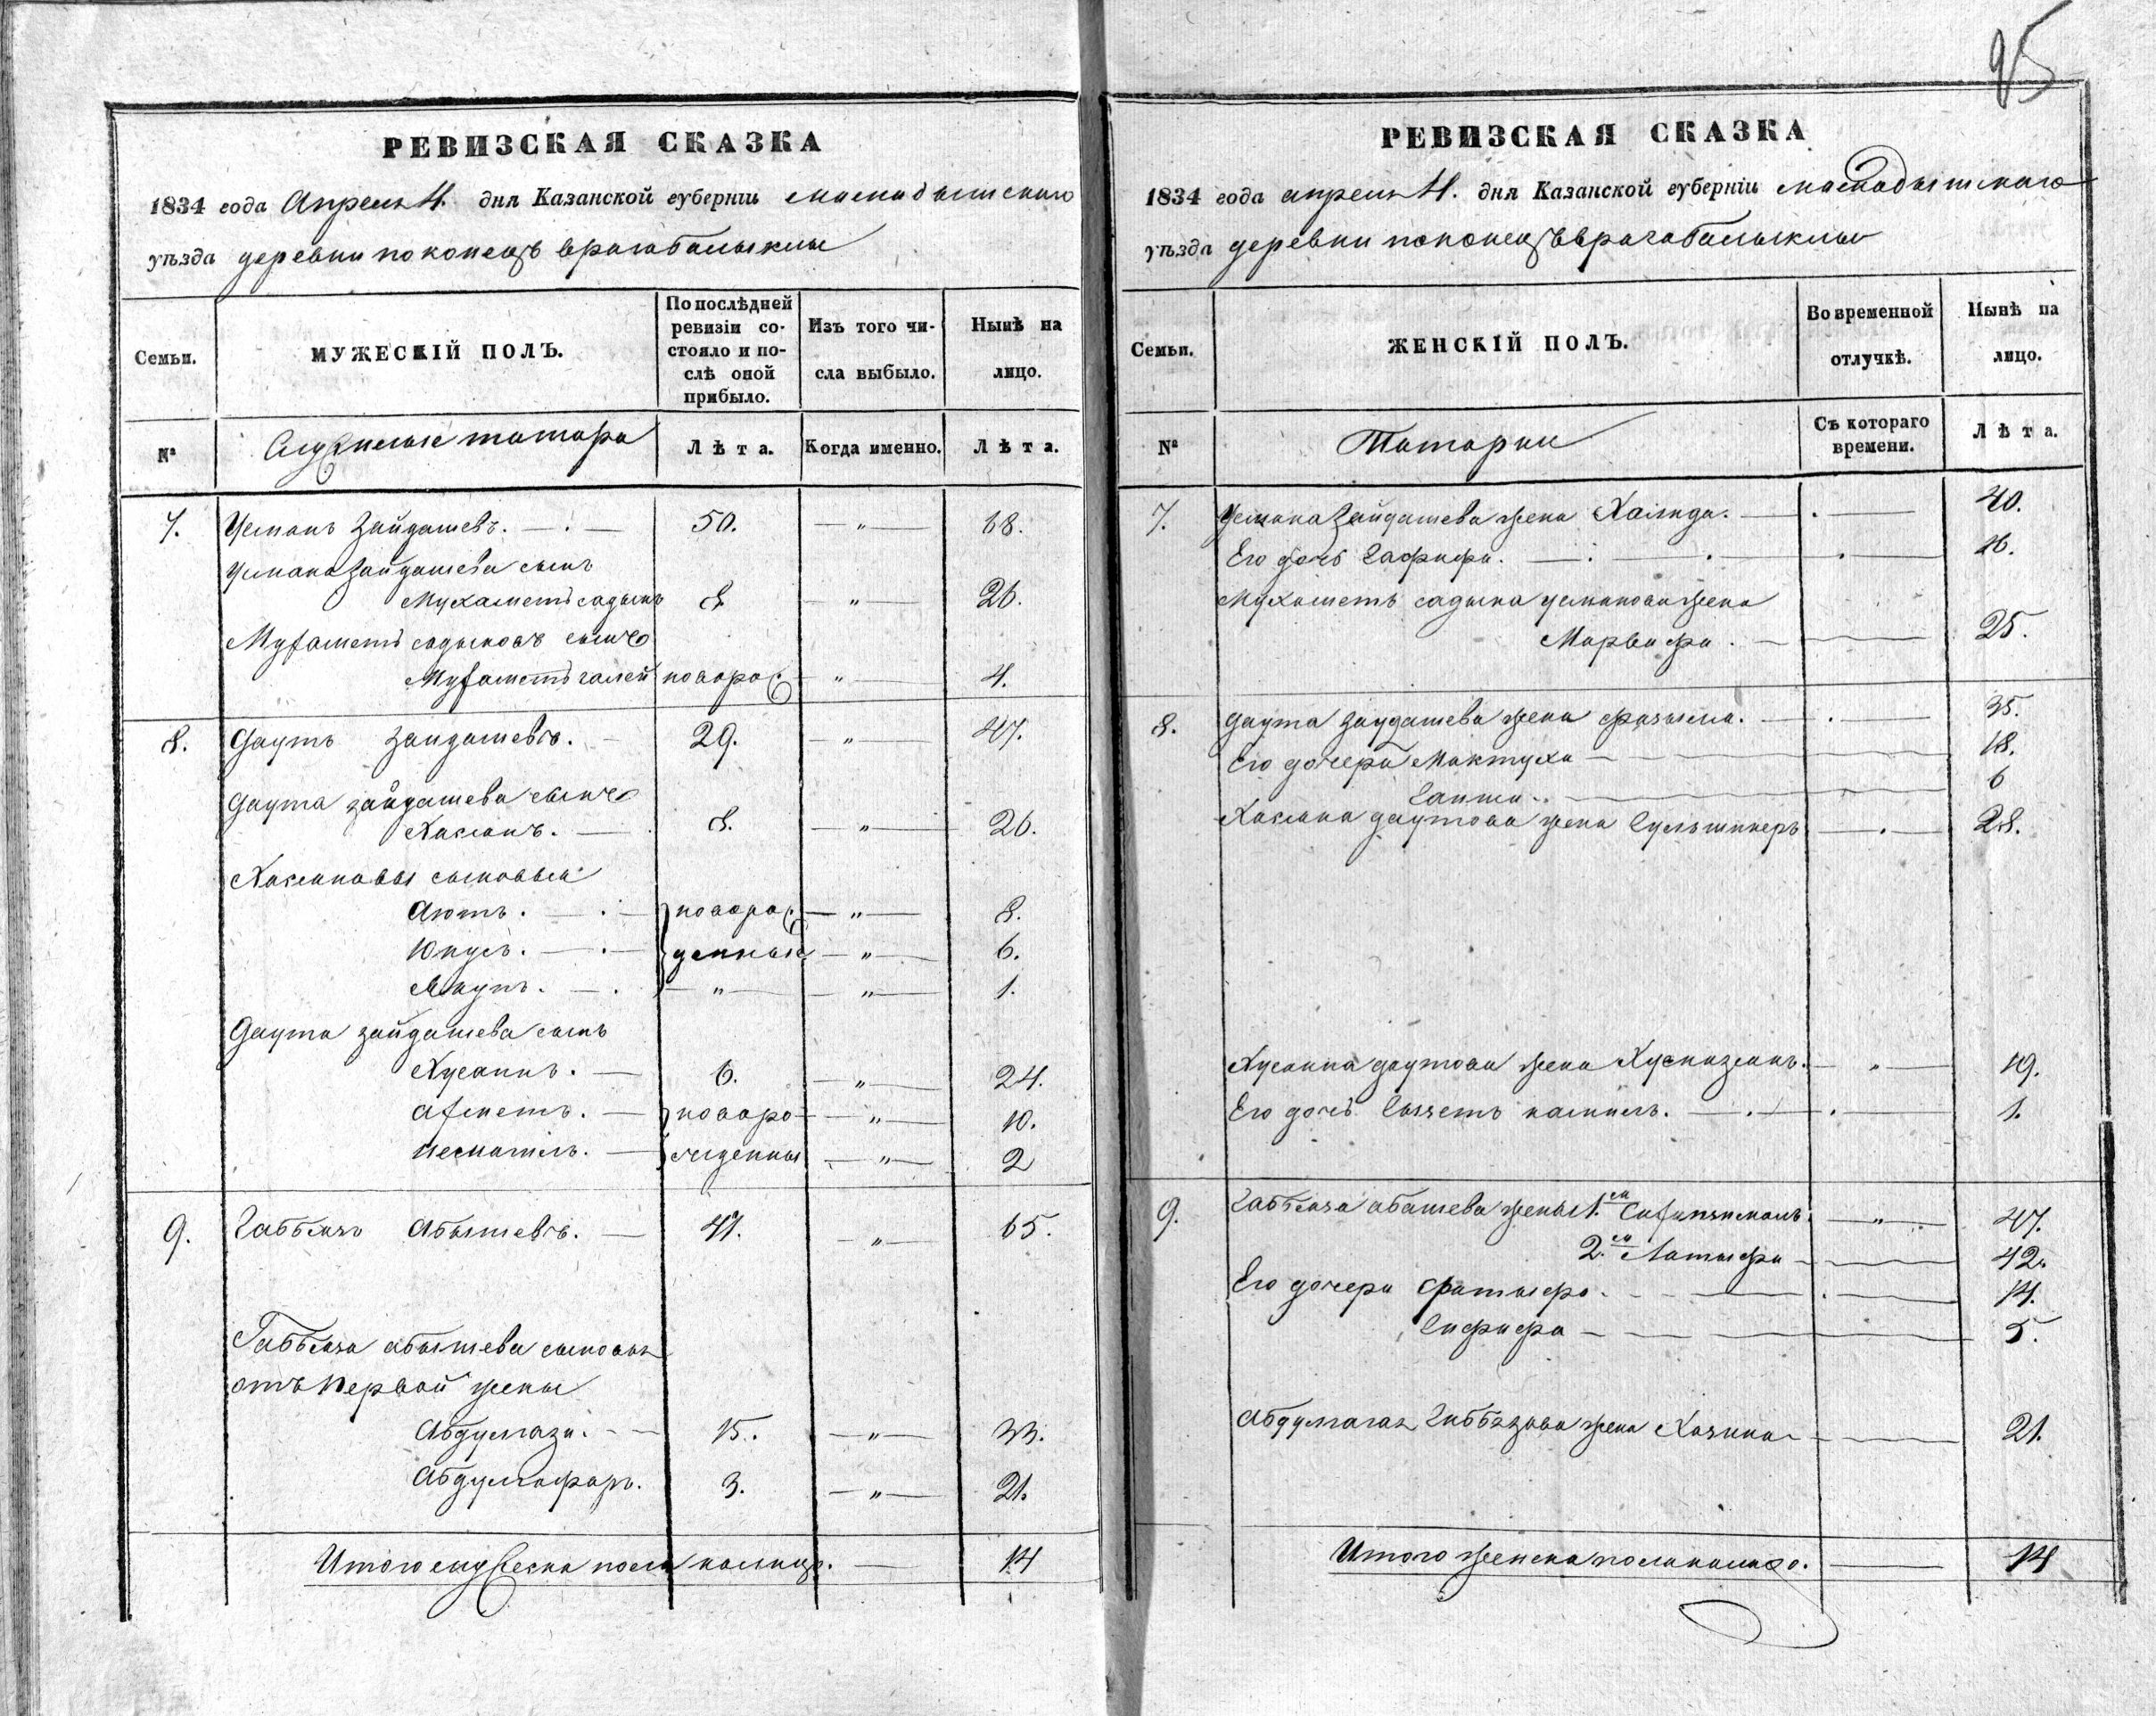 95
РЕВИЗСКАЯ СКАЗКА
1834 года Апреля 4. дня Казанской губерніи мамадышскаго
уѣзда деревни поконецъ врага балыклы
Семьи. МУЖЕСКІЙ ПОЛЪ. По послѣдней ревизіи состояло и послѣ оной прибыло. Изъ того числа выбыло. Нынѣ на лицо.
№ Служилые татара Лѣта. Когда именно. Лѣта.
7. Усманъ Зайдашевъ. 50. " 68.
Усмана Зайдашева сынъ
Мухаметъ садыкъ 8. " 26.
Мухаметъ садыковъ сынъ
Мухаметъ галей новорож. " 4.
8. Даутъ Заидашевъ. 29. " 47.
Даута зайдашева сынъ
Хасанъ. 8. " 26.
Хасановы сыновья
Аютъ. новорож " 8.
Юнусъ. денные " 6.
Якупъ. " " 1.
Даута зайдашева сынъ
Хусаинъ. 6. " 24.
Ахметъ. новоро " 10.
жденныя " 2
9. Габбясъ Абышевъ. 47. " 65.
Габбяза абышева сыновья
отъ первой жены
Абдулгази. 15. " 33.
Абдулгафаръ. 3. " 21.
Итого мужеска пола налицо. 14
РЕВИЗСКАЯ СКАЗКА
1834 года апреля 4. дня Казанской губерніи мамадышскаго
уѣзда деревни поконецъ врага балыклы
Семьи. ЖЕНСКІЙ ПОЛЪ. Во временной отлучкѣ. Нынѣ на лицо.
№ Татарки Съ котораго времени. Лѣта.
7. Усмана Зайдашева жена Халида. 40.
Его дочь Гафифа. 16.
Мухаметъ садыка усманова жена
Марьифа. 25.
8. Даута Заудашева жена фазыла. 35.
Его дочери Мактуха 18.
6
Хасана даутова жена Гульшинеръ 28.
Хусаина даутова жена Хуснизянъ. " 19.
Его дочь 1.
9. Габбяза абашева жены 1.ая " 47.
2.ая Латыфа 42.
Его дочери Фатыфа. 14.
Гифифа 5.
Абдулгазы Габбязова жена Хазина 21.
Итого женска пола налицо. 14